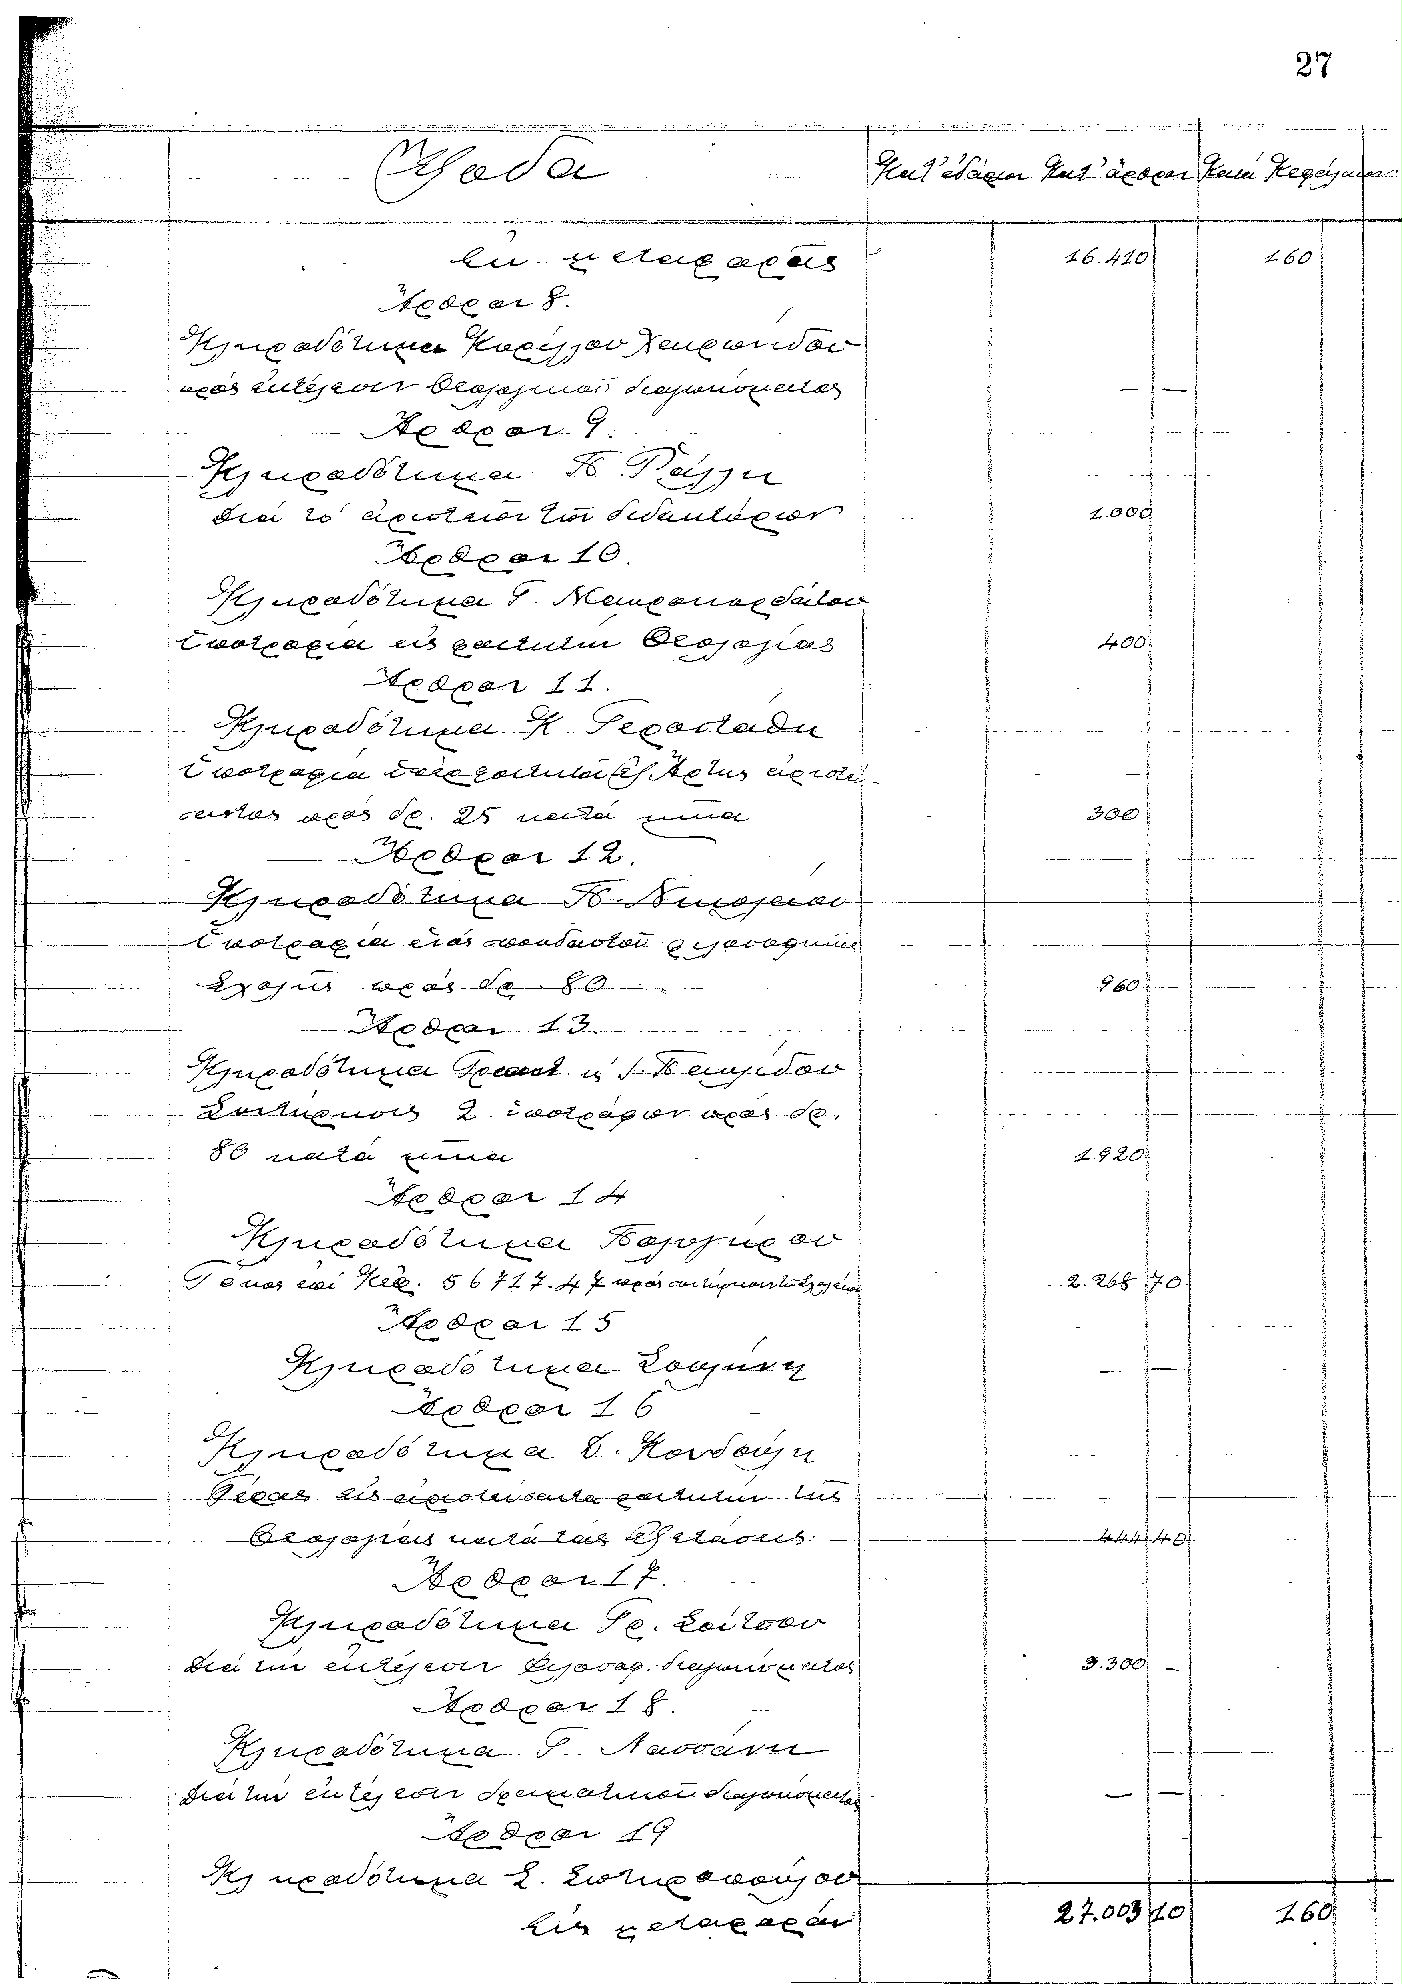 27
Ἔξοδα
Κατ' ἐδάφιον Κατ' ἄρθρον Κατὰ Κεφάλαιον
Ἐκ μεταφορᾶς 16.410 160
Ἄρθρον 8.
Κληροδότημα Κυρίλλου Χαιρωνίδου
πρὸς ἐκτέλεσιν Θεολογικοῦ διαγωνίσματος — —
Ἄρθρον 9.
Κληροδότημα Θ. Ράλλη
διὰ τὸ ἀριστεῖον τῶν διδακτόρων 1.000
Ἄρθρον 10.
Κληροδότημα Γ. Μαυροκορδάτου
Ὑποτροφία εἰς φοιτητὴν Θεολογίας 400
Ἄρθρον 11.
Κληροδότημα Κ. Γεροστάθη
Ὑποτροφία ὑπὲρ φοιτητοῦ ἐξ Ἄρτης ἀριστεύ-
σαντος πρὸς δρ. 25 κατὰ μῆνα 300
Ἄρθρον 12.
Κληροδότημα Θ. Νικολαΐου
Ὑποτροφία ἑνὸς σπουδαστοῦ φιλοσοφικῆς
Σχολῆς πρὸς δρ. 80 960
Ἄρθρον 13.
Κληροδότημα Παυλίδου
Συντήρησις 2 ὑποτρόφων πρὸς δρ.
80 κατὰ μῆνα 1.920
Ἄρθρον 14
Κληροδότημα Βαλλιάρου
Τόκος ἐπὶ Κεφ. 56717.47 πρὸς συντήρησιν τῶν Σχολείων 2.268 70
Ἄρθρον 15
Κληροδότημα Σουλίνη — —
Ἄρθρον 16
Κληροδότημα Δ. Κονδούλη
Γέρας εἰς ἀριστεύσαντα φοιτητὴν τῆς
Θεολογίας κατὰ τὰς ἐξετάσεις 444 40
Ἄρθρον 17.
Κληροδότημα Γρ. Σούτσου
Διὰ τὴν ἐκτέλεσιν Φιλοσοφ. διαγωνίσματος 3.300 –
Ἄρθρον 18.
Κληροδότημα Γ. Λασσάνη
Διὰ τὴν ἐκτέλεσιν δραματικοῦ διαγωνίσματος — —
Ἄρθρον 19
Κληροδότημα Σ. Σωτηροπούλου
Εἰς μεταφορὰν 27.003 10 160